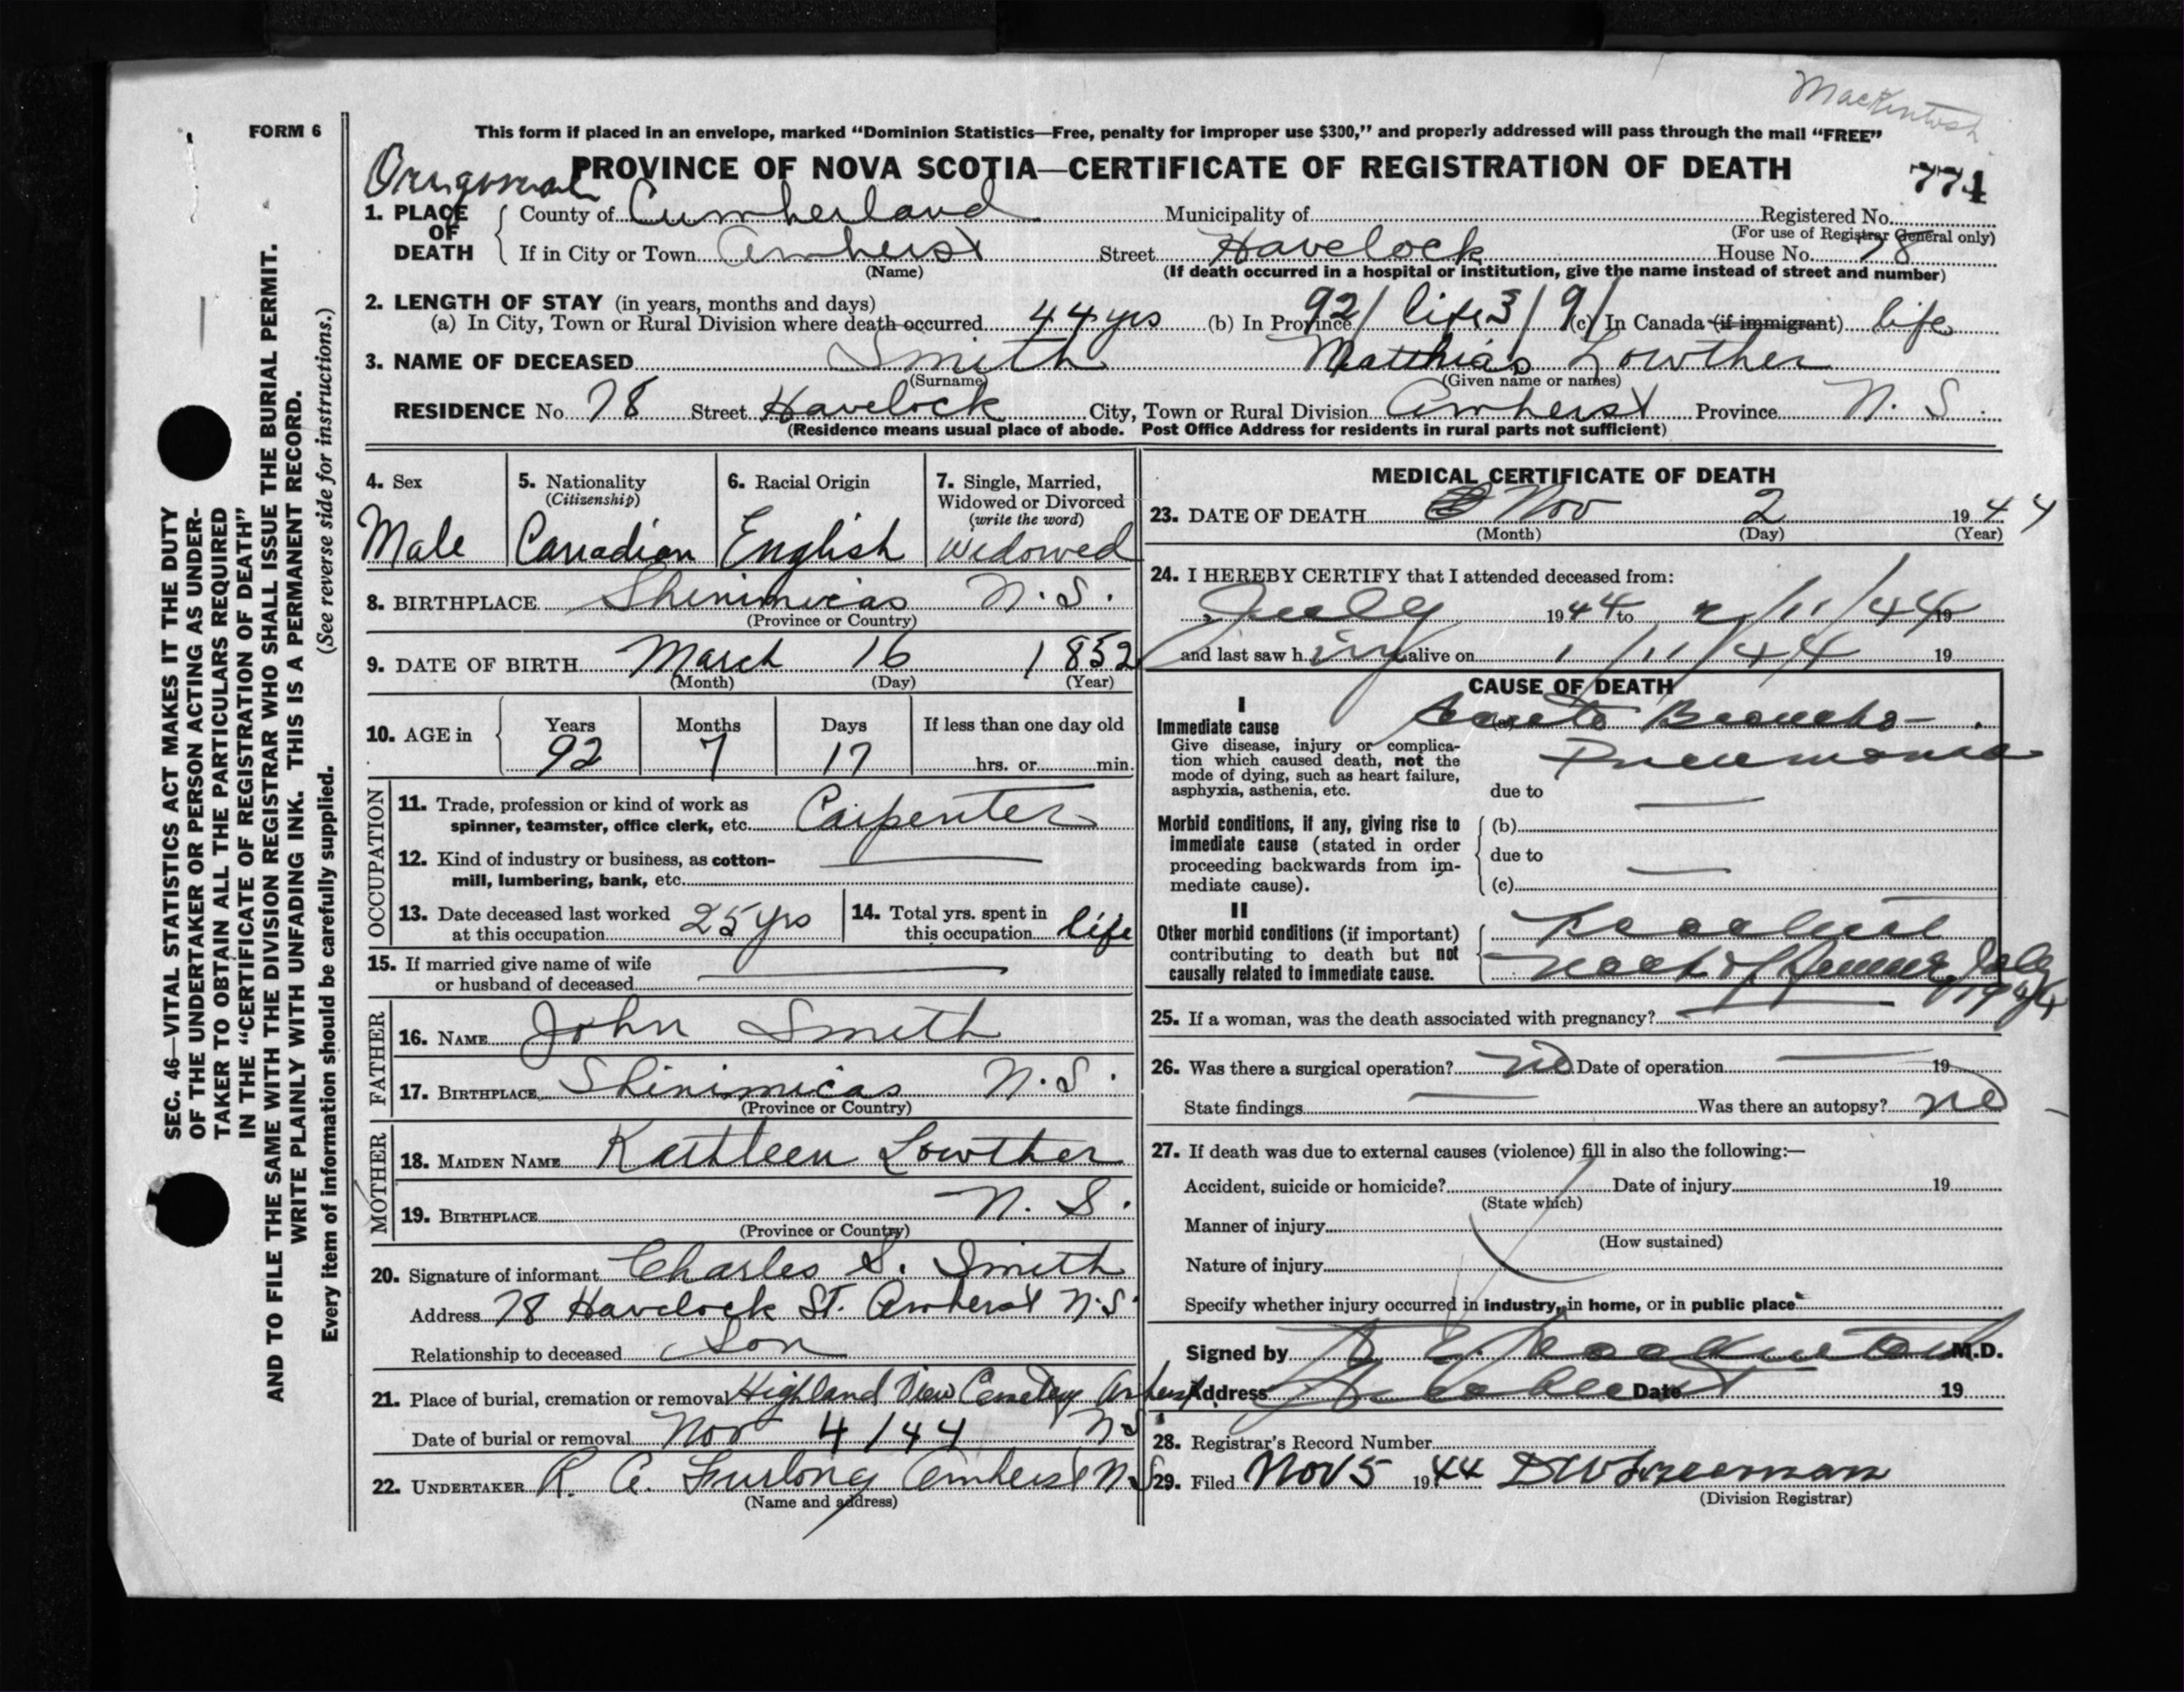 MacKintosh
FORM 6
This form if placed in an envelope, marked “Dominion Statistics—Free, penalty for improper use $300,” and properly addressed will pass through the mail “FREE”
PROVINCE OF NOVA SCOTIA—CERTIFICATE OF REGISTRATION OF DEATH
771
1. PLACE OF DEATH
County of Cumberland Municipality of Registered No.
(For use of Registrar General only)
If in City or Town Amherst Street Havelock House No. 78
(Name) (If death occurred in a hospital or institution, give the name instead of street and number)
2. LENGTH OF STAY (in years, months and days)
(a) In City, Town or Rural Division where death occurred 44 yrs (b) In Province 92/ life 3/9/ (c) In Canada (if immigrant) life
3. NAME OF DECEASED Smith Matthias Lowther
(Surname) (Given name or names)
RESIDENCE No. 78 Street Havelock City, Town or Rural Division Amherst Province N. S.
(Residence means usual place of abode. Post Office Address for residents in rural parts not sufficient)
4. Sex
Male
5. Nationality
(Citizenship)
Canadian
6. Racial Origin
English
7. Single, Married,
Widowed or Divorced
(write the word)
Widowed
8. BIRTHPLACE Shinimicas N. S.
(Province or Country)
9. DATE OF BIRTH March 16 1852
(Month) (Day) (Year)
10. AGE in
Years Months Days If less than one day old
92 7 17 hrs. or min.
OCCUPATION
11. Trade, profession or kind of work as
spinner, teamster, office clerk, etc. Carpenter
12. Kind of industry or business, as cotton-
mill, lumbering, bank, etc.
13. Date deceased last worked
at this occupation 25 yrs
14. Total yrs. spent in
this occupation life
15. If married give name of wife
or husband of deceased
FATHER
16. NAME John Smith
17. BIRTHPLACE Shinimicas N. S.
(Province or Country)
MOTHER
18. MAIDEN NAME Kathleen Lowther
19. BIRTHPLACE N. S.
(Province or Country)
20. Signature of informant Charles S. Smith
Address 78 Havelock St. Amherst N. S.
Relationship to deceased Son
21. Place of burial, cremation or removal Highland View Cemetery Amherst
Date of burial or removal Nov 4/44 N S
22. UNDERTAKER R. A. Furlong Amherst N S
(Name and address)
MEDICAL CERTIFICATE OF DEATH
23. DATE OF DEATH Nov 2 1944
(Month) (Day) (Year)
24. I HEREBY CERTIFY that I attended deceased from:
July 1944 to 2/11/44 19
and last saw h im alive on 1/11/44 19
CAUSE OF DEATH
I
Immediate cause
Give disease, injury or complica-
tion which caused death, not the
mode of dying, such as heart failure,
asphyxia, asthenia, etc.
(a) Acute Broncho-
Pneumonia
due to
Morbid conditions, if any, giving rise to
immediate cause (stated in order
proceeding backwards from im-
mediate cause).
(b)
due to
(c)
II
Other morbid conditions (if important)
contributing to death but not
causally related to immediate cause.
neck of femur July
1944
25. If a woman, was the death associated with pregnancy?
26. Was there a surgical operation? no Date of operation 19
State findings Was there an autopsy? no
27. If death was due to external causes (violence) fill in also the following:—
Accident, suicide or homicide? Date of injury 19
(State which)
Manner of injury
(How sustained)
Nature of injury
Specify whether injury occurred in industry, in home, or in public place
Signed by Mackintosh M.D.
Address Date 19
28. Registrar's Record Number
29. Filed Nov 5 1944 D W Freeman
(Division Registrar)
SEC. 46—VITAL STATISTICS ACT MAKES IT THE DUTY
OF THE UNDERTAKER OR PERSON ACTING AS UNDER-
TAKER TO OBTAIN ALL THE PARTICULARS REQUIRED
IN THE “CERTIFICATE OF REGISTRATION OF DEATH”
AND TO FILE THE SAME WITH THE DIVISION REGISTRAR WHO SHALL ISSUE THE BURIAL PERMIT.
WRITE PLAINLY WITH UNFADING INK. THIS IS A PERMANENT RECORD.
Every item of information should be carefully supplied. (See reverse side for instructions.)